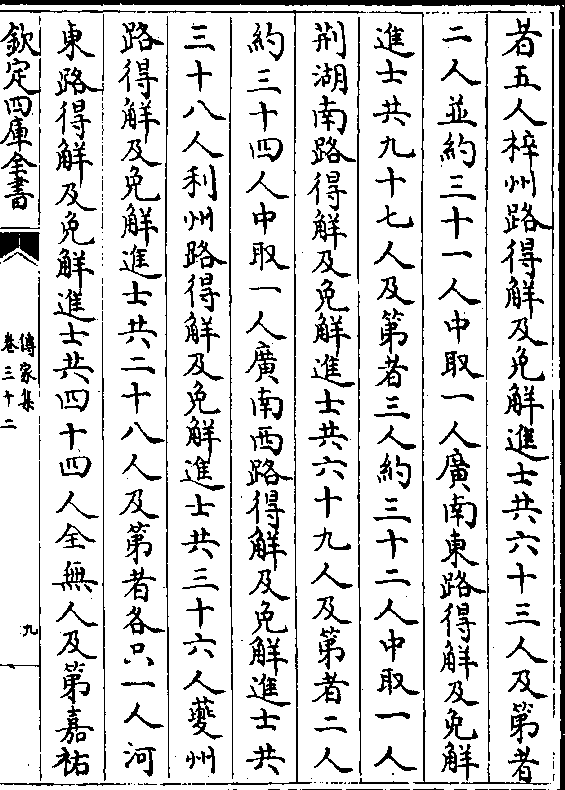 者五人梓州路得解及免解進士共六十三人及第者
二人並約三十一人中取一人廣南東路得解及免解
進士共九十七人及第者三人約三十二人中取一人
荆湖南路得解及免解進士共六十九人及第者二人
約三十四人中取一人廣南西路得解及免解進士共
三十八人利州路得解及免解進士共三十六人夔州
路得解及免解進士共二十八人及第者各只一人河
東路得解及免解進士共四十四人全無人及第嘉祐
欽定四庫全書
傳家集
卷三十二
九